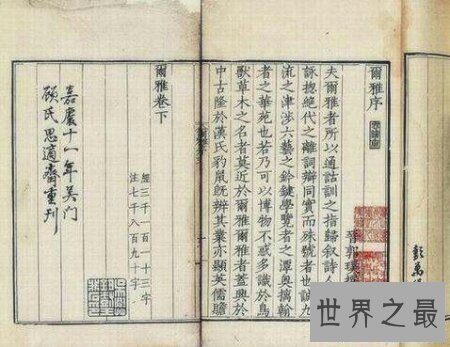 爾雅序
晉郭璞撰
夫爾雅者所以通詁訓之指歸敘詩人
詠揔絕代之離詞辯同實而殊號者也誠九
流之津涉六藝之鈐鍵學覽者之潭奧摛翰
者之華苑也若乃可以博物不惑多識於鳥
獸草木之名者莫近於爾雅爾雅者蓋興於
中古隆於漢氏豹鼠既辯其業亦顯英儒贍
爾雅卷下
經三千一百一十三字
注七千八百九十字
嘉慶十一年吳門
顧氏思適齋重刊
世界之最